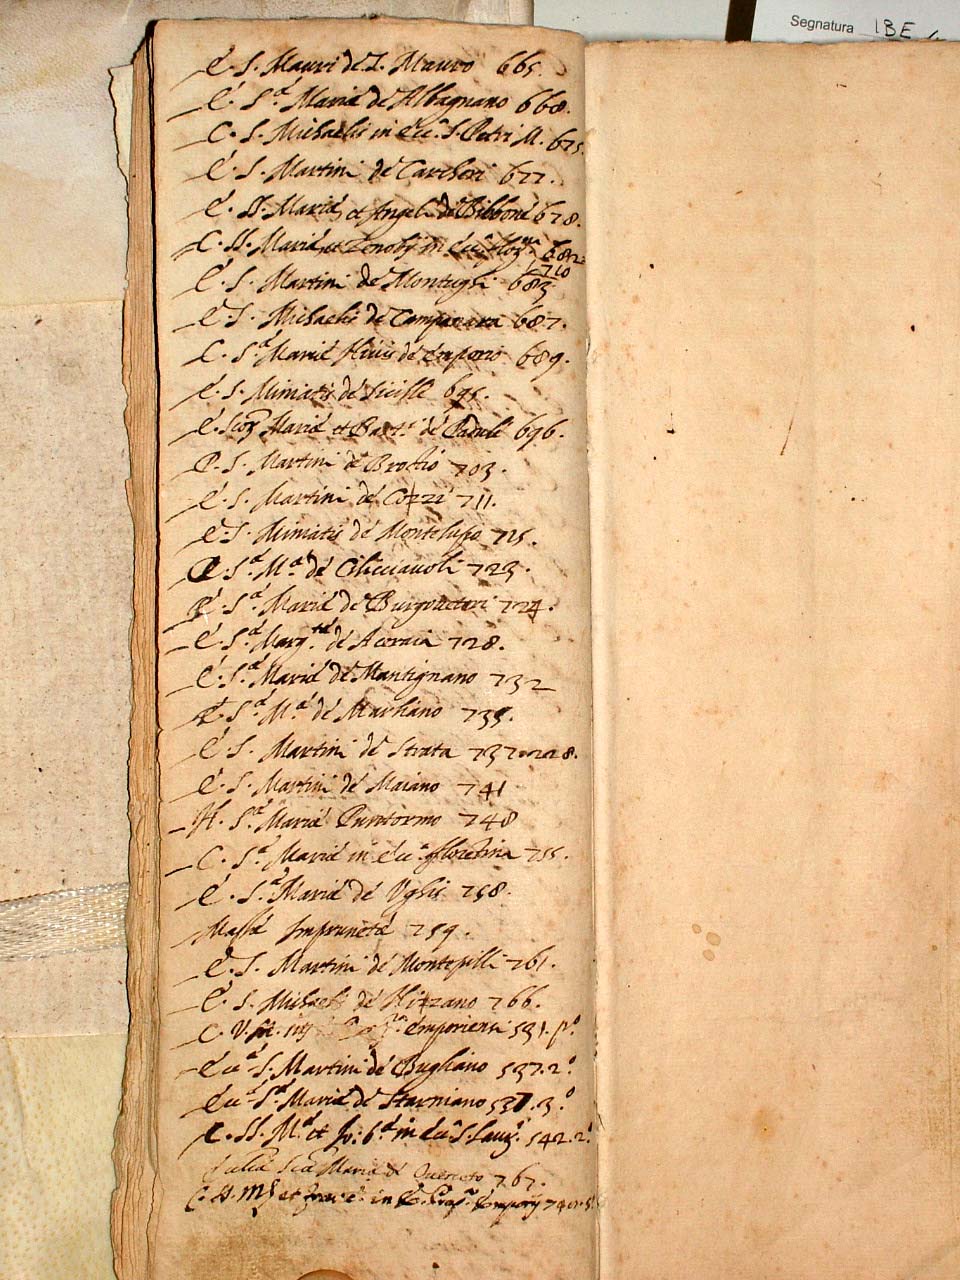 Segnatura IBE
E. S. Mauri de S. Mauro 665.
E. S.ª Mariæ de Albagnano 668.
C. S. Michaelis in Ecc. S. Petri M. 675.
E. S. Martini de Carcheri 677.
E. SS. Mariæ et Angeli de Bibbone 678.
C. SS. Mariæ et Zenobij in Ecc. 682
710
E. S. Martini de Montughi 683
E. S. Michaelis de Campanara 687.
C. S.ª Mariæ de Emporio 689.
E. S. Miniatis de Sicille 695.
E. Mariæ et Bart. de Padule 696.
P. S. Martini de Brozio 703.
E. S. Martini de Cozzi 711.
E. S. Miniatis de Montelupo 715.
E S.ª M.ª de Cilicciavoli 723.
E S.ª Mariæ de Burgo 724.
E. S.ª Marg.tæ de Acoraia 728.
E. S.ª Mariæ de Mantignano 732
E. S.ª M.ª de Marliano 735.
E. S. Martini de Strata 737 228.
E. S. Martini de Maiano 741
H. S.ª Mariæ Puntormo 748
C. S.ª Mariæ in Ecc.ª florentina 755.
E. S.ª Mariæ de Ughis 758.
Massa Imprunetæ 759.
E. S. Martini de Montepilli 761.
E. S. Michaelis de Pizzano 766.
C. V. M. Emporiensi 531. p.º
Ecc.ª S. Martini de Bugliano 537. 2.º
Ecc.ª S.ª Mariæ de Starniano 537. 3.º
C. SS. M.ª et Jo: b.ª in Ecc. S. Laur. 542. 2.º
Mariæ de Querceto 767.
C. SS. et in Emporij 740